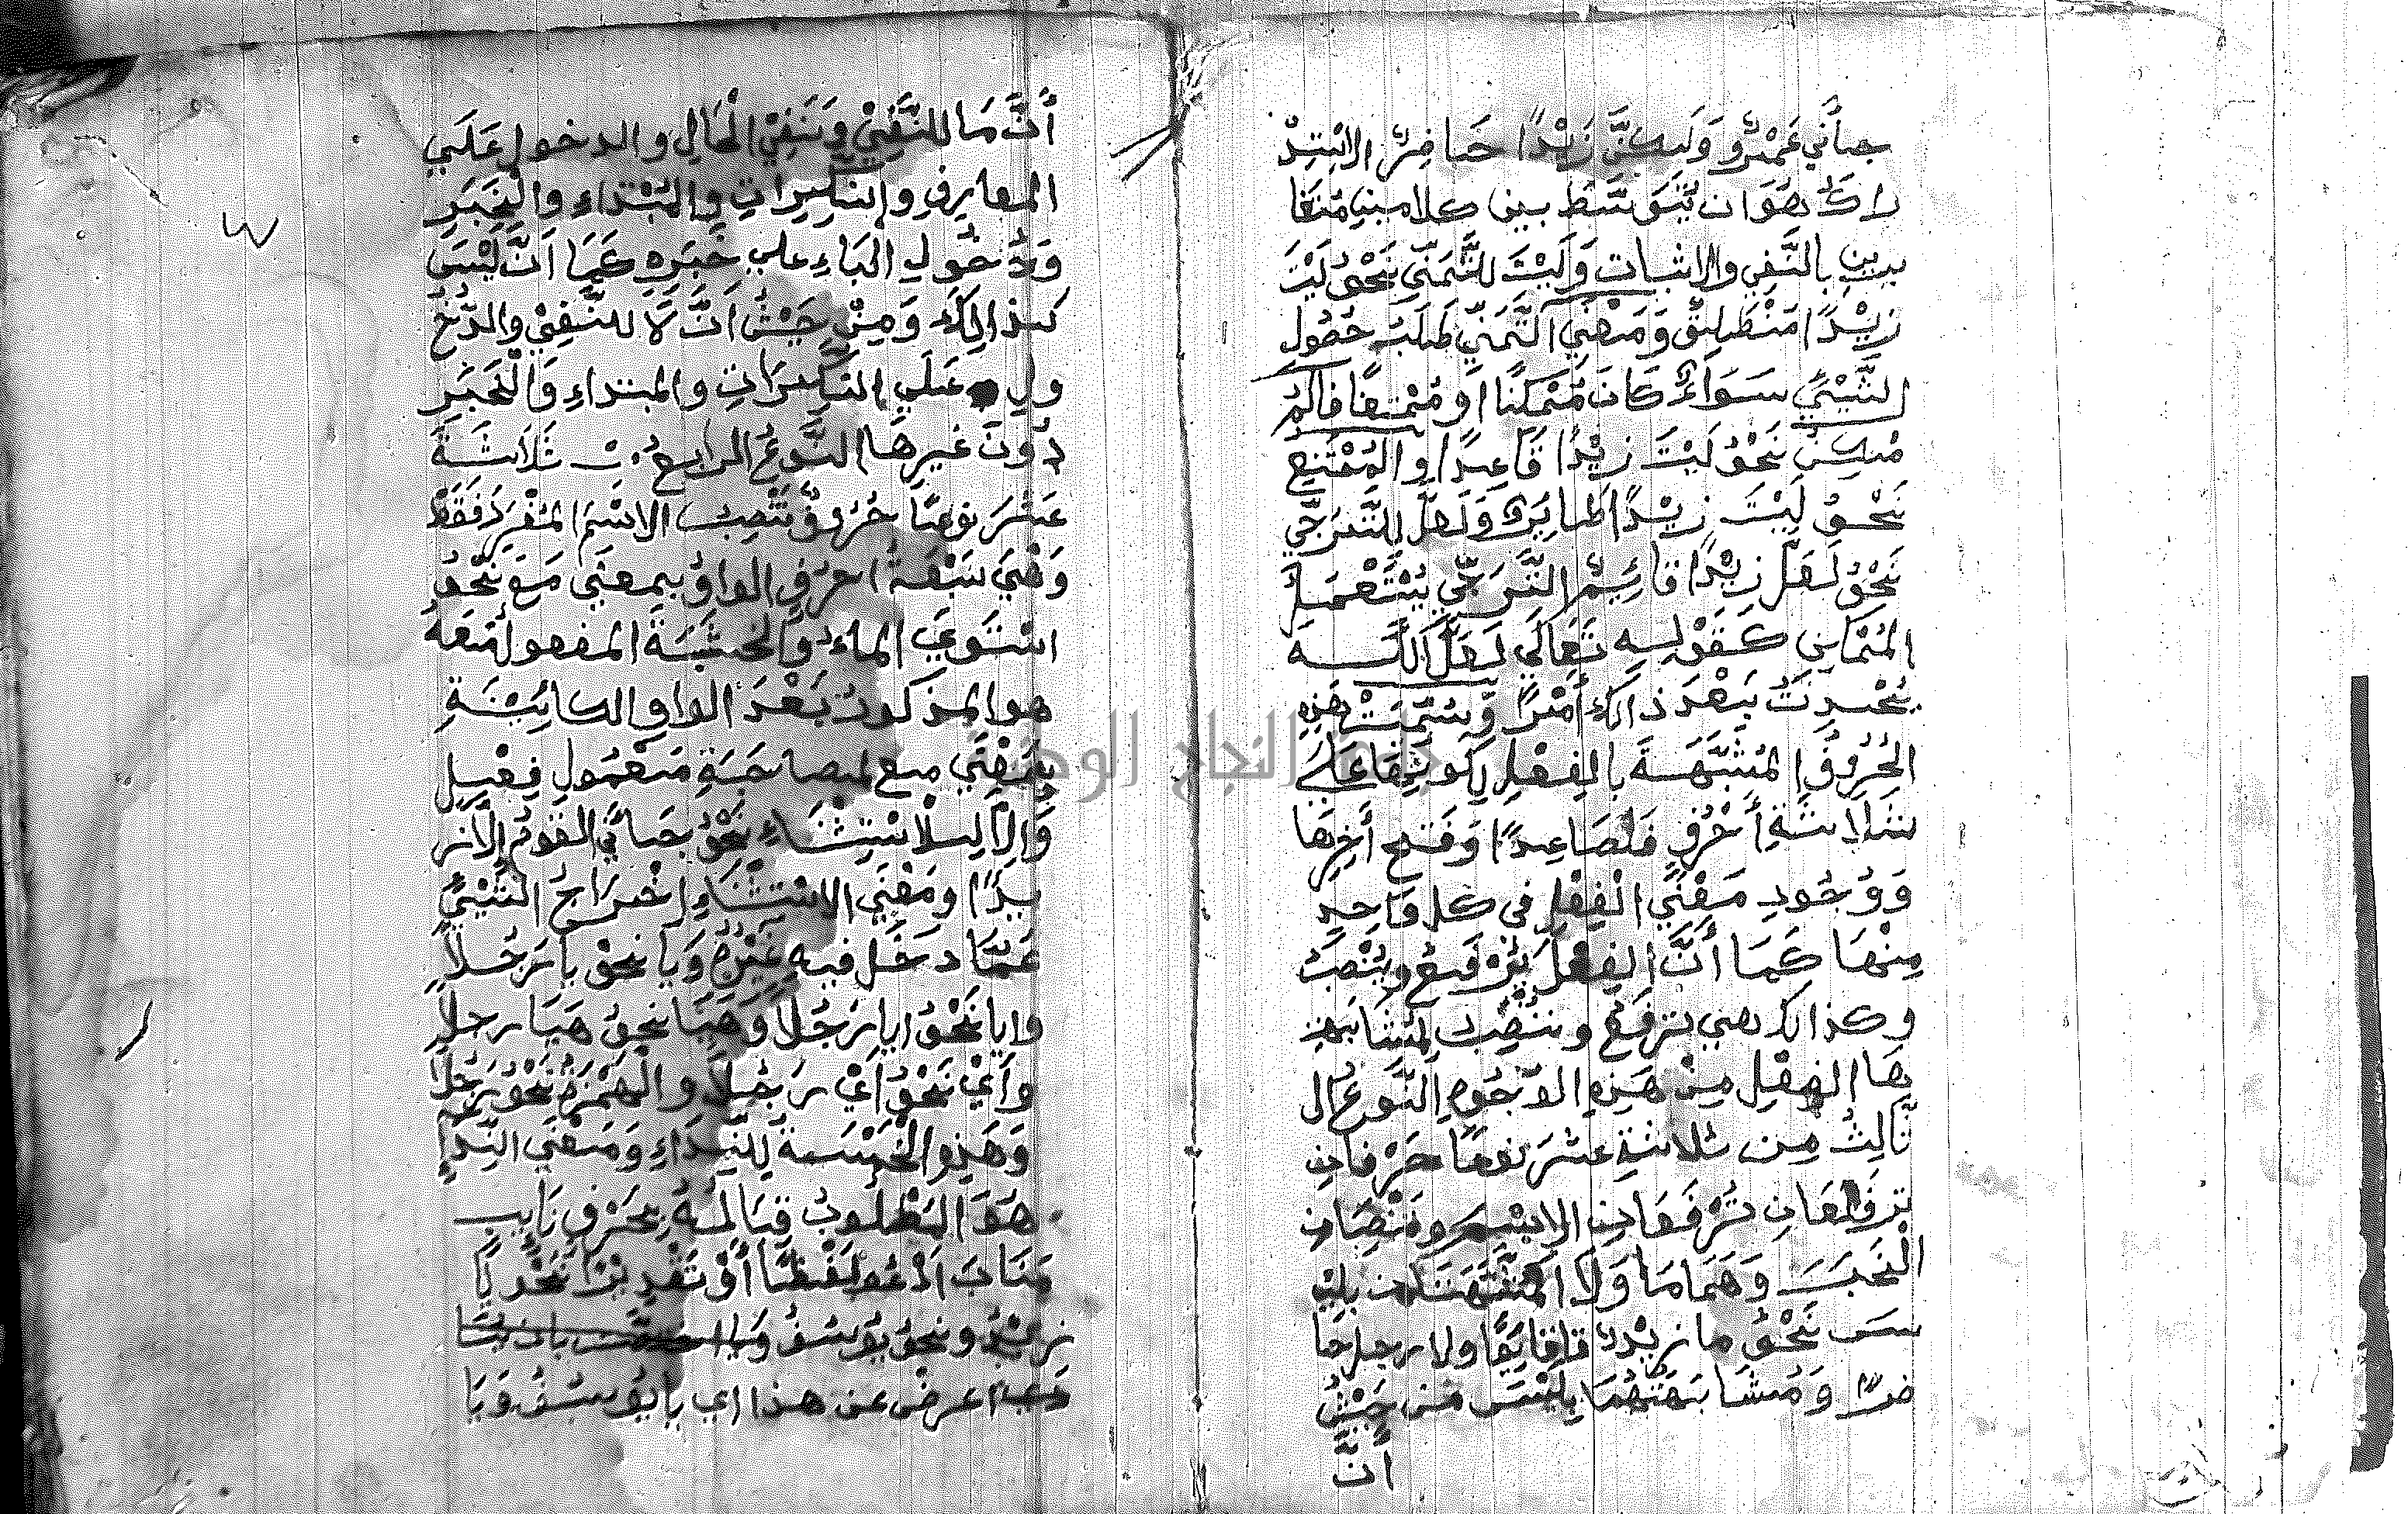 جاأني عَمْرٌو وَلَكِنَّ زَيْدًا حَاضِرٌ الاسْتِدْ
راكُ هُوَ ان يَتَوَسَّطَ بين كلامين مُتَغَا
يرين بالنَّفي والاثبات وَلَيْتَ للتَّمَنِّي نَحْوُ لَيْتَ
زَيْدًا مُنْطَلِقٌ وَمَعْنَي التَّمَنِّي طَلَبُ حُصُول
الشَّيْئِ سَوَاءٌ كَانَ مُمْكِنًا او مُمْتَنِعًا فالمُ
مْكِنُ نَحْوُ لَيْتَ زَيْدًا قَاعِدًا والمُمْتَنِعِ
نَحْوُ لَيْتَ زيْدًا طَايِرٌ وَلَعَلَّ لِلتَّرَجِّي
نَحْوُ لَعَلَّ زَيْدًا قَائِمٌ التَّرَجِّي يُسْتَعْمَلُ
المُمْكِنِ كَقَوْلِهِ تَعَالَي لَعَلَّ اللَّـهَ
يُحْدِثُ بَعْدَ ذَالِكَ أَمْرًا وَسُمِّيَتْ هَذِهِ
الحُرُوفُ المُشَبَّهَةَ بِالفِعْلِ لِكَونِهَا عَلَي
ثَلاثَةِ أَحْرُفٍ فَصَاعِدًا وَفَتح أَخِرِهَا
وَوُجُودِ مَعْنَي الْفِعْلِ في كل وَاحِدٍ
مِنْهَا كَمَا أَنَّ الفِعْلَ يَرْفَعُ ويَنْصَبُ
وكذالك هي تَرْفَعُ وتَنْصِبُ لِمُشَابَهَتِ
هَا الفِعْلِ مِنْ هَذِهِ الوُجُوهِ النَّوعُ ال
ثَّالِثُ مِن ثلاثةِ عَشَرَ نوعًا حَرْفانِ
تَرفَعَانِ تَرْفَعَانِ الاِسْمَ وتَنْصِبَانِ
الْخَبَرَ وَهُمَا مَا وَلَا المُشَبَّهَتَانِ بلَيْـ
سَ نَحْوُ ما زيْدٌ قَائِمًا ولا رجل حَا
ضرًا وَمُشَابَهَتُهُمَا بِلَيْسَ مِن حَيْثُ
أَنَّ
أَنَّ مَا للنَّفْيِ وَنَفْيِ الْحَالِ والدخول عَلَي
المعارِفِ والنَّكِرَاتِ والمُبْتداءِ والْخَبَرِ
وَدُخُولِ البَاءِ علي خَبَرِهِ كَمَا انَّ لَيْسَ
كَذالِكَ وَمِنْ حَيْثُ اَنَّ لَا للنَّفْيِ والدُّخُ
ولِ عَلَي النَّكِرَاتِ والمبتداءِ وَالْخَبَرِ
دُونَ غيرِهَا النَّوعُ الرابع من ثَلاثَةَ
عَشَرَ نوعًا حُرُوفٌ تَنْصِبُ الاسْمَ المُفْرَدَ فَقَطْ
وَهْيَ سَبْعَةُ احرُفٍ الواوُ بمعنَي مَعَ نَحْوُ
اسْتَوَي الماءُ والخَشَبَةَ المفعولُ مَعَهُ
هو المذكورُ بَعْدَ الواو الكائِنَةِ
بِمَعْنَي مع لمصاحَبَةِ مَعْمُولِ فِعْلٍ
وَإِلَّا لِلاسْتِثْنَاءِ نَحْوُ جَاأني القَوْمُ إِلَّا زَ
يْدًا ومَعْنَي الاستثْنَاءِ إِخْرَاجُ الشَّيْئِ
عَمَّا دَخَلَ فيهِ غَيْرُهُ وَيا نحوُ يا رَجُلًا
وايا نَحْوُ ايا رَجُلًا وَهَيَا نحوُ هَيَا رجلًا
وَأَيْ نَحْوُ أَيْ رَجُلًا والْهَمْزَةُ نَحْوُ رَجُلًا
وَهَذِهِ الْخَمْسَةُ لِلنِّدَاءِ وَمَعْنَي النِّدَاءِ
هُوَ المَطْلُوبُ قِبَالُهُ بِحَرْفٍ نَايِبٍ
مَنَابَ اَدْعُو لَفْظًا أَوْ تَقْدِيْرًا نَحْوُ يَا
زَيْدُ ونحوُ يُوسُفُ
اعرض عن هذا اي يا يُوسُفُ وَيَا
جامعة النجاح الوطنية